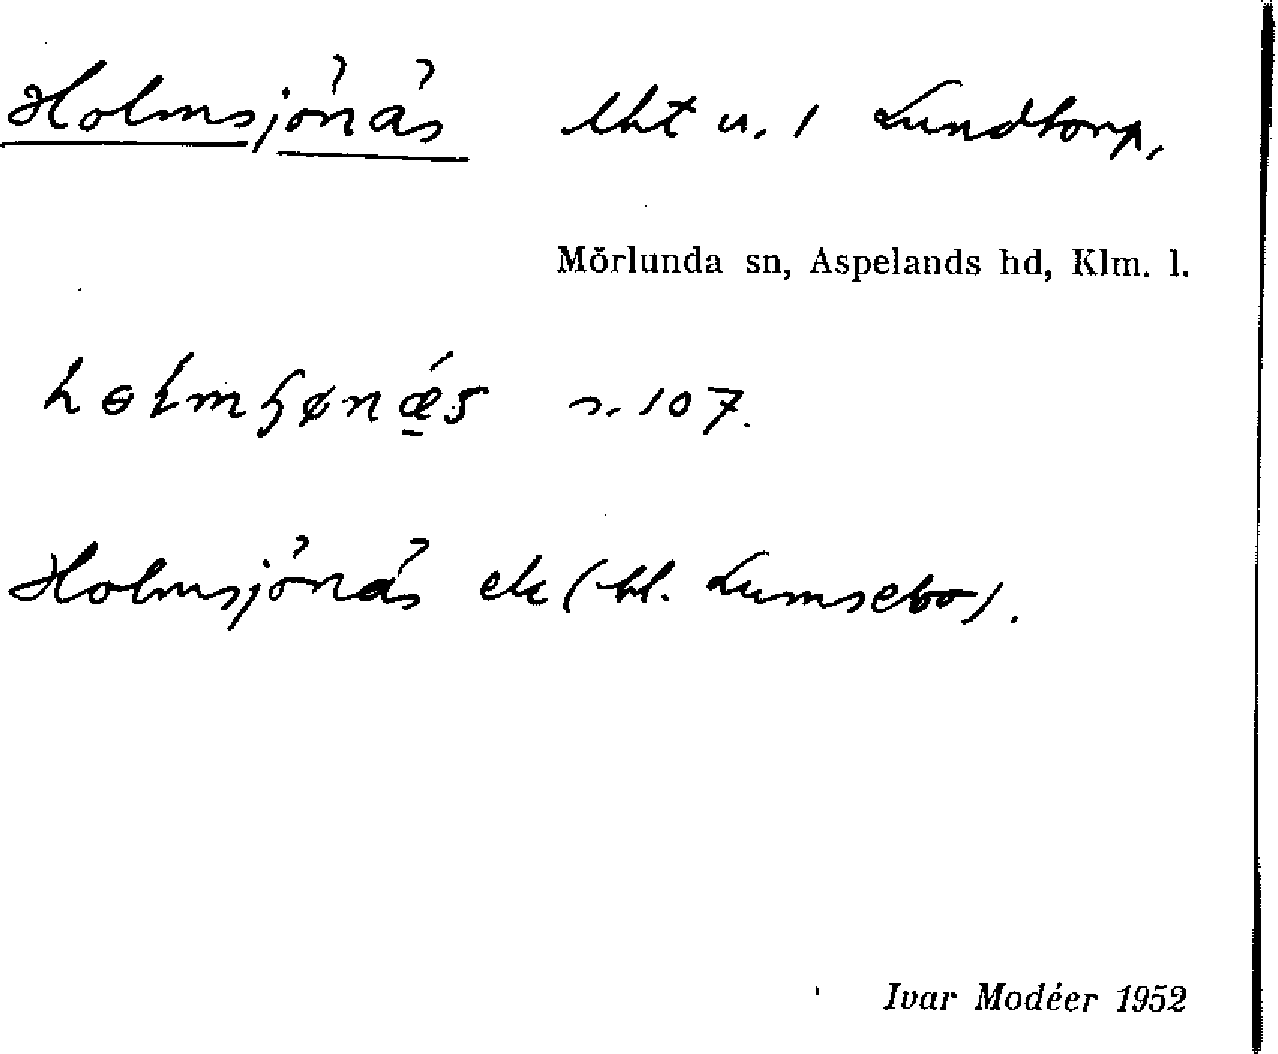 Holmsjönäs lht u. 1 Lundtorp,
Mörlunda sn, Aspelands hd, Klm. l.
s. 107.
Holmsjönäs ek (bl. Lumsebo).
Ivar Modéer 1952